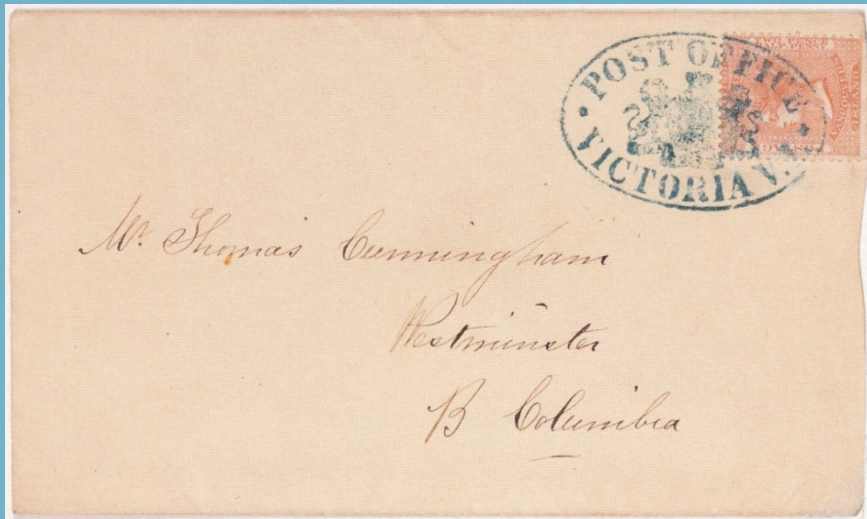 POST OFFICE
VICTORIA V.
Mr. Thomas Cunningham
Westminster
B Columbia